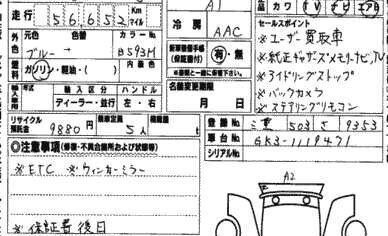 走行 56,652 Km マイル
A1
カワ TV ナビ エアB
冷房 AAC
セールスポイント
外色 元色 色替 カラーNo.
ブルー → B593M
※ユーザー買取車
※純正ギャザズメモリーナビ,TV
新車整備手帳 (保証書付) 有・無
燃料 ガソリン・軽油・( ) 内装色
※アイドリングストップ
※バックカメラ
名義変更期限
輸入車 年式 輸入区分 ハンドル
ディーラー・並行 左・右
月 日
※ステアリングリモコン
リサイクル預託金 9880円 乗車定員 5人 積載量 t
登録No. 三重 503 す 9353
車台No. GK3-1119471
シリアルNo.
◎注意事項(修復・不具合箇所および状態等)
※ETC ※ウィンカーミラー
A2
※保証書後日